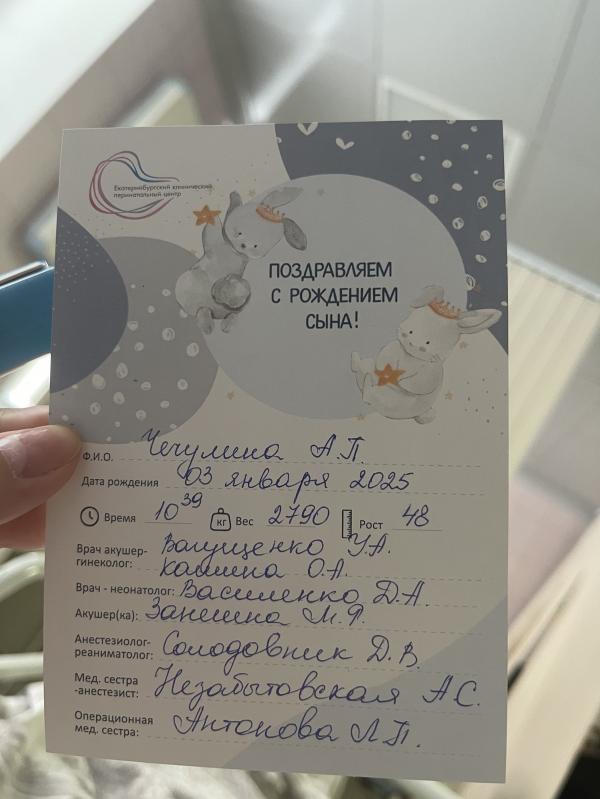 Екатеринбургский клинический
перинатальный центр
ПОЗДРАВЛЯЕМ
С РОЖДЕНИЕМ
СЫНА!
Ф.И.О. Чечулина А.П.
Дата рождения 03 января 2025
Время 10 39 кг Вес 2790 Рост 48
Врач акушер- Валущенко У.А.
гинеколог: Кашина О.А.
Врач - неонатолог: Василенко Д.А.
Акушер(ка): Занешина М.Я.
Анестезиолог-
реаниматолог: Солодовник Д.В.
Мед. сестра
-анестезист: Незабытовская А.С.
Операционная
мед. сестра: Антонова Л.П.